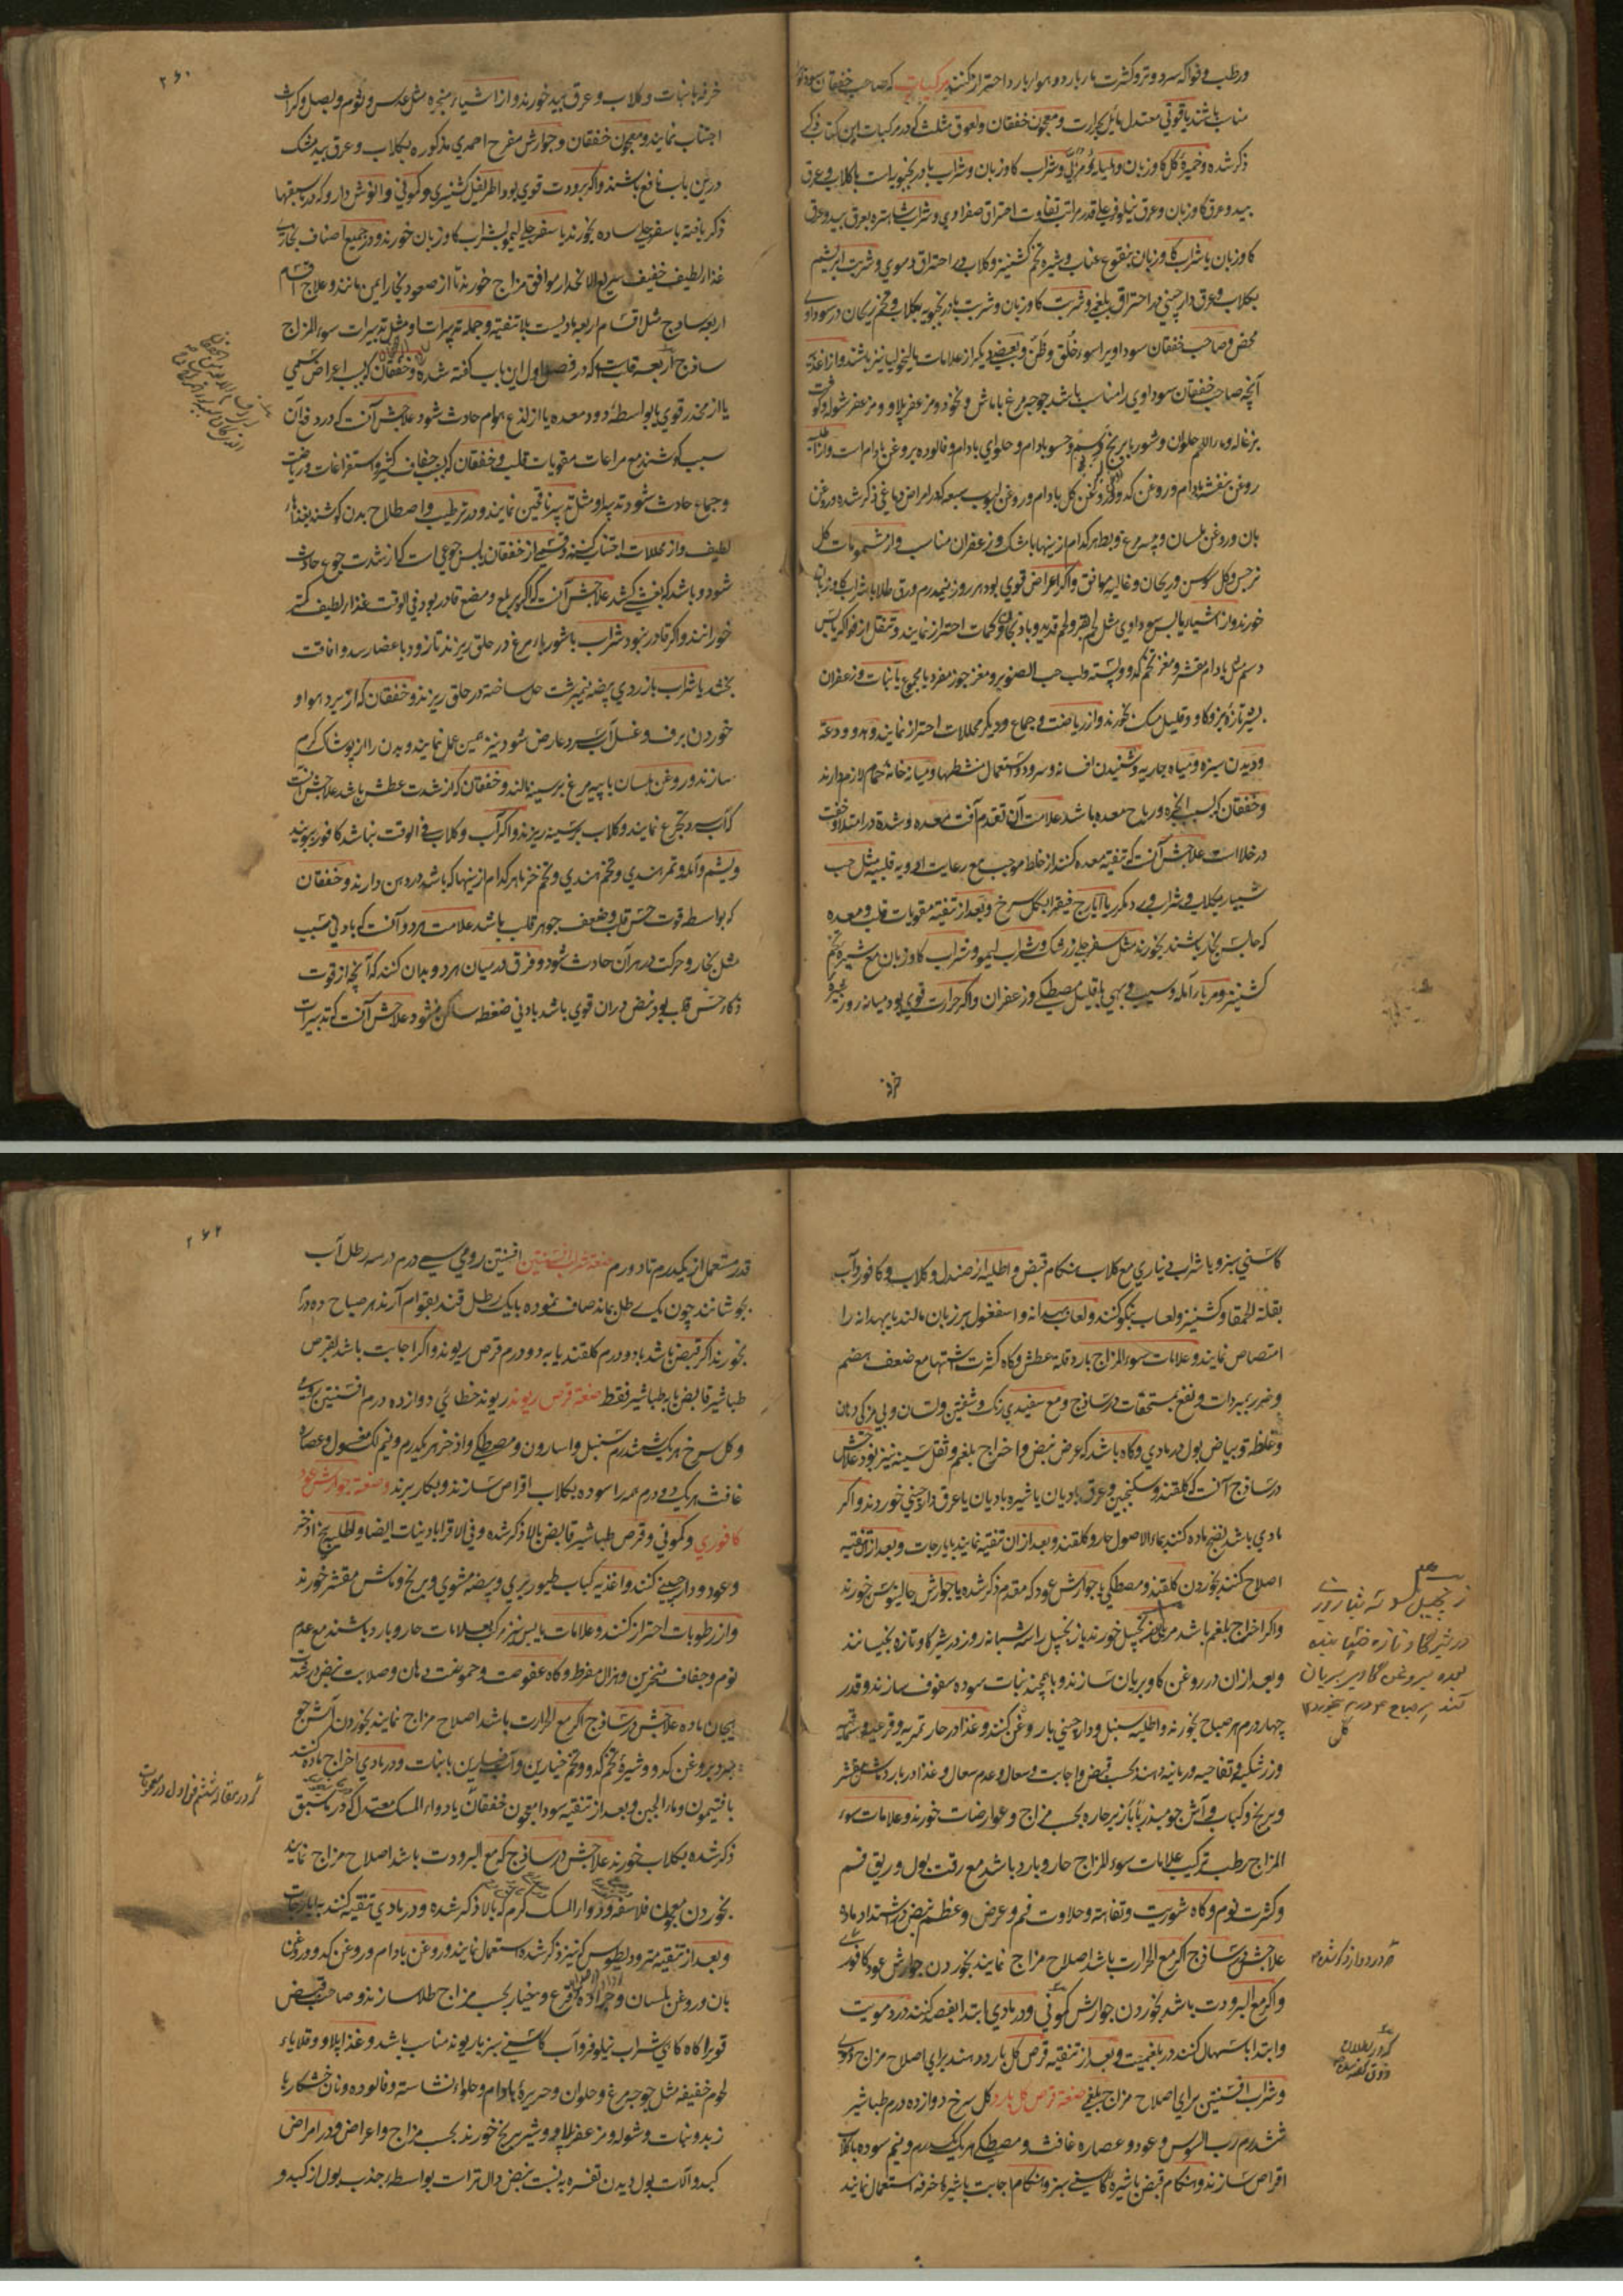 ورطب و فواکه سرد و تر و کثرت بار بارد و هوار بارد احتراز کنند مرکبات که صاحب خفقان سوداوی
مناسب باشند یاقوتی معتدل مایل بحرارت و معجون خفقان و لعوق مثلث که در مرکبات این کتاب
ذکر شده و خمیره کل کاوزبان و شراب کاوزبان و شراب بادرنجبویه است با کلاب و عرق
بید و عرق کاوزبان و عرق نیلوفر علی قدر مراتب تفاوت احتراق صفراوی و شراب شاهتره بعرق بید و عرق
کاوزبان یا شراب کاوزبان بنقوع عناب و شیره تخم کشنیز و کلاب در احتراق دموی و شربت ابریشم
بکلاب و عرق دارچینی در احتراق بلغمی و شربت کاوزبان و شربت بادرنجبویه بکلاب و تخم ریحان در سوداوی
محض و صاحب خفقان سوداوی را سوء خلق و ظن و بعضی دیکر از علامات مالیخولیا نیز باشند و از اغذیه
آنچه صاحب خفقان سوداوی را مناسب باشد جوجه مرغ با ماش و نخود و مزعفر پلاو و مزعفر شوله و کوفت
بزغاله و ماء اللحم حلوان و شوربا برنج و حسو بادام و حلوای بادام و فالوده بروغن بادام است و از اطلیه
روغن بنفشه بادام و روغن کدو و روغن کل بادام و روغن لبوب سبعه که در امراض دماغی ذکر شده و روغن
بان و روغن بلسان و پیه مرغ و بط هرکدام از ینها با مشک و زعفران مناسب و از شمومات کل
نرجس و کل سوسن و ریحان و غالیه موافق و اکر اعراض قوی بود هر روز نیمدرم ورق طلا با شراب کاوزبان
خورند و از اشیاء یابس سوداوی مثل لحم بقر و لحم قدید و بادنجان و کمات احتراز نمایند و تنقل از فواکه یابس
دسم مثل بادام مقشر و مغز تخم کدو و پسته و لب حب الصنوبر و مغز جوز مفرد یا مجموع با نبات و زعفران
بشیر تازه بز و کاو و قلیل مشک بخورند و از ریاضت و جماع و دیکر محللات احتراز نمایند و هدو و دعة
و دیدن سبزه و میاه جاریه و شنیدن افسانه و سرود و استعمال منشطها و میانه خانه حمام لازم دارند
و خفقان که بسبب ابخره و ریاح معده باشد علامت آن تقدم آفت معده و شدة در امتلا و خفت
در خلا است علاجش آنست که تنقیه معده کنند از خلط موجب مع رعایت ادویه قلبیه مثل حب
شبیار بکلاب و شراب ورد مکرر یا ایارج فیقرا بکل سرخ و بعد از تنقیه مقویات قلب و معده
که حابس بخار باشند بخورند مثل سفرجلی زرشک و شراب لیمو و شراب کاوزبان مع شیره تخم
کشنیز و مربا آمله و سیب و بهی با قلیل مصطکی و زعفران و اکر حرارت قوی بود میانه روز شیره
خرفه
۲۶۰
خرفه با نبات و کلاب و عرق بید خورند و از اشیاء مبخره مثل عدس و ثوم و بصل و کراث
اجتناب نمایند و معجون خفقان و جوارش مفرح احمدی مذکوره بکلاب و عرق بید مشک
درین باب نافع باشند و اکر برودت قوی بود اطریفل کشنیزی و کمونی و انوش دارو که در سبقها
ذکر یافته با سفرجلی ساده بخورند یا سفرجلی لیمو بشراب کاوزبان خورند و در جمیع اصناف بخاری
غذا لطیف خفیف سریع الانحدار موافق مزاج خورند تا از صعود بخار ایمن مانند و علاج اقسام
اربعه ساذج مثل اقسام اربعه مادیست بلا تنقیه و جمله تدبیرات او مثل تدبیرات سوء المزاج
ساذج اربعه قلب است که در فصل اول این باب کفته شده و خفقان که بسبب اعراض سمی
یا از مخدر قوی یا بواسطه دود معده یا از لذع هوام حادث شود علاجش آنست که در دفع آن
سبب کوشند مع مراعات مقویات قلب و خفقان که بسبب جفاف کثیر و استفراغات و ریاضت
و جماع حادث شود تدبیر او مثل تدبیر ناقهین نمایند و در ترطیب و اصطلاح بدن کوشند بغذاء
لطیف و از محللات اجتناب کنند و قسمی از خفقان یابس جوعی است که از شدت جوع حادث
شود و باشد که بغشی کشد علاجش آنست که اکر بر بلع و مضغ قادر بود فی الوقت غذا لطیف کمتر
خورانند و اکر قادر نبود شراب با شوربا مرغ در حلق ریزند تا زود باعضا رسد و افاقت
بخشد یا شراب بازردی بیضه نیمبرشت حل ساخته در حلق ریزند و خفقان که از برد هوا و
خوردن برف و غسل آب سرد عارض شود نیز همین عمل نمایند و بدن را از پوشاک کرم
سازند و روغن بلسان با پیه مرغ بر سینه مالند و خفقان که از شدت عطش باشد علاجش آنست
که آب سرد تجرع نمایند و کلاب بر سینه ریزند و اکر آب و کلاب فی الوقت نباشد کافور بویند
و یشم و آمله و تمر هندی و تخم هندی و تخم خرفا هرکدام از ینها که باشد در دهن دارند و خفقان
که بواسطه قوت حس قلب و ضعف جوهر قلب باشد علامت هر دو آنست که بادنی سبب
مثل بخار و حرکت در هر آن حادث شود و فرق در میان هر دو بدان کنند که آنچه از قوت
ذکاء حس قلب بود نبض در ان قوی باشد بادنی ضغطه ساکن نشود علاجش آنست که تدبیرات
کاسنی سبز و با شراب دیناری مع کلاب هنکام قبض و اطلیه از صندل و کلاب و کافور و آب
بقلة الحمقا و کشنیز و لعاب بنکو کنند و لعاب بهدانه و اسفغول بر زبان مالند یا بهدانه را
امتصاص نمایند و علامات سوء المزاج بارد قلة عطش و کاه کثرت اشتها مع ضعف هضم
و ضرر بمبردات و نفع بمسخنات در ساذج و مع سفیدی رنک و شفتین و لسان و بی مزکی دهان
و غلظة و بیاض بول در مادی و کاه باشد که عرض نبض و اخراج بلغم و ثقل سینه نیز بود علاجش
در ساذج آنست که کلقند و سکنجبین و عرق بادیان یا شیره بادیان یا عرق دارچینی خورند و اکر
مادی باشد نضج ماده کنند بماء الاصول حار و کلقند و بعد از ان تنقیه نمایند بایارجات و بعد از تنقیه
اصلاح کنند بخوردن کلقند و مصطکی یا جوارش عود که مقدم ذکر شده یا جوارش جالینوس خورند
و اکر اخراج بلغم باشد مربای زنجبیل خورند یا زنجبیل را سه شبانه روز در شیر کاو تازه بخیسانند
و بعد از ان در روغن کاو بریان سازند و با همچند نبات سوده سفوف سازند و قدر
چهار درم هر صباح بخورند و اطلیه سنبل و دارچینی بار و غن کنند و غذا در حار تمریه و قرعیه و سماقیه
و زرشکیه و تفاحیه و رمانیه دهند بحسب قبض و اجابت و سعال و عدم سعال و غذا در بارد ماش مقشر
و برنج و کباب و آش جو مبذر با بازیر حاره بحسب مزاج و عوارضات خورند و علامات سوء
المزاج رطب ترکیب علامات سوء المزاج حار و بارد باشد مع رقت بول و ریق فم
و کثرت نوم و کاه شوریت و تفاهة و حلاوت فم و عرض و عظم نبض در اشتداد ماده
علاجش در ساذج اکر مع الحرارت باشد اصلاح مزاج نمایند بخوردن جوارش عود کافوری
و اکر مع البرودت باشد بخوردن جوارش کمونی و در مادی ابتدا بفصد کنند در دمویت
و ابتدا باسهال کنند در بلغمیت و بعد از تنقیه قرص کل بارد دهند برای اصلاح مزاج دموی
و شراب افسنتین برای اصلاح مزاج بلغمی صنعة قرص کل بارد کل سرخ دوازده درم طباشیر
ششدرم رب السوس و عود و عصاره غافث و مصطکی هر یک یکدرم و نیم سوده با کلاب
اقراص سازند و هنکام قبض با شیره کاسنی سبز و هنکام اجابت با شیره خرفه استعمال نمایند
زنجبیل سه شبانه روز
در شیر کاو تازه
بعده بروغن کاو بریان
کنند هر صباح
۲۶۲
قدر مستعمل از یکدرم تا دو درم صنعة شراب افسنتین افسنتین رومی سی درم در سه رطل آب
بجوشانند چون یک رطل بماند صاف نموده با یک رطل قند بقوام آرند هر صباح ده درم
بخورند اکر قبض باشد با دو درم کلقند یا به دو درم قرص ریوند و اکر اجابت باشد بقرص
طباشیر قابض یا به طباشیر فقط صنعة قرص ریوند ریوند خطائی دوازده درم افسنتین رومی
و کل سرخ هر یک ششدرم سنبل و اسارون و مصطکی و اذخر هر یک درم و نیم لک مغسول و عصاره
غافث هر یک دو درم همه را سوده بکلاب اقراص سازند و بکار برند و صنعة جوارش عود
کافوری و کمونی و قرص طباشیر قابض بالا ذکر شده و فی الاقرابادینات ایضا و اطلیه بیخ اذخر
و عود و دارچینی کنند و اغذیه کباب طیور بری و بیضه مشوی و برنج و ماش مقشر خورند
و از رطوبات احتراز کنند و علامات یابس نیز مرکب بعلامات حار و بارد باشند مع عدم
نوم و جفاف منخرین و هزال مفرط و کاه عفوصت و حموضت دهان و صلابت نبض در شدت
هیجان ماده علاجش در ساذج اکر مع الحرارت باشد اصلاح مزاج نمایند بخوردن آش جو
مبرد بروغن کدو و شیره تخم کدو و تخم خیارین و آب خیارین با نبات و در مادی اخراج ماده کنند
بافتیمون و ماء الجبن و بعد از تنقیه سودا معجون خفقان یا دواء المسک معتدل که در ما سبق
ذکر شده بکلاب خورند علاجش در ساذج که مع البرودت باشد اصلاح مزاج نمایند
بخوردن معجون فلاسفه و دواء المسک کرم که بالا ذکر شده و در مادی تنقیه کنند به ایارجات
و بعد از تنقیه مثرودیطوس که نیز ذکر شده استعمال نمایند و روغن بادام و روغن کدو و روغن
بان و روغن بلسان و جراده قرع و خیار بحسب مزاج طلا سازند و صاحب قبض
قوی را کاه کاهی شراب نیلوفر و آب کاسنی سبز یا ریوند مناسب باشد و غذا پلاو و قلایاء
لحوم خفیفه مثل جوجه مرغ و حلوان و حریره بادام و حلواء نشاسته و فالوده و نان خشکار با
زبد و نبات و شوله و مزعفر پلاو و شیر برنج خورند بحسب مزاج و اعراض و در امراض
کبد و آلات بول دیدن تفسره به نسبت نبض دال تر است بواسطه جذب بول از کبد و